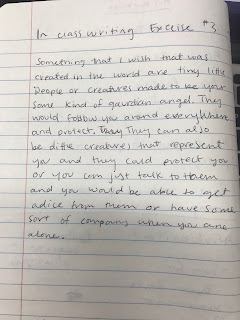 In class writing Excise #3
Something that I wish that was
created in the world are tiny little
people or creatures made to be your
some kind of gaurdian angel. They
would follow you around everywhere
and protect. They can also
be different creatures that represent
you and they could protect you
or you can just talk to them
and you would be able to get
adice from them or have some
sort of company when you are
alone.